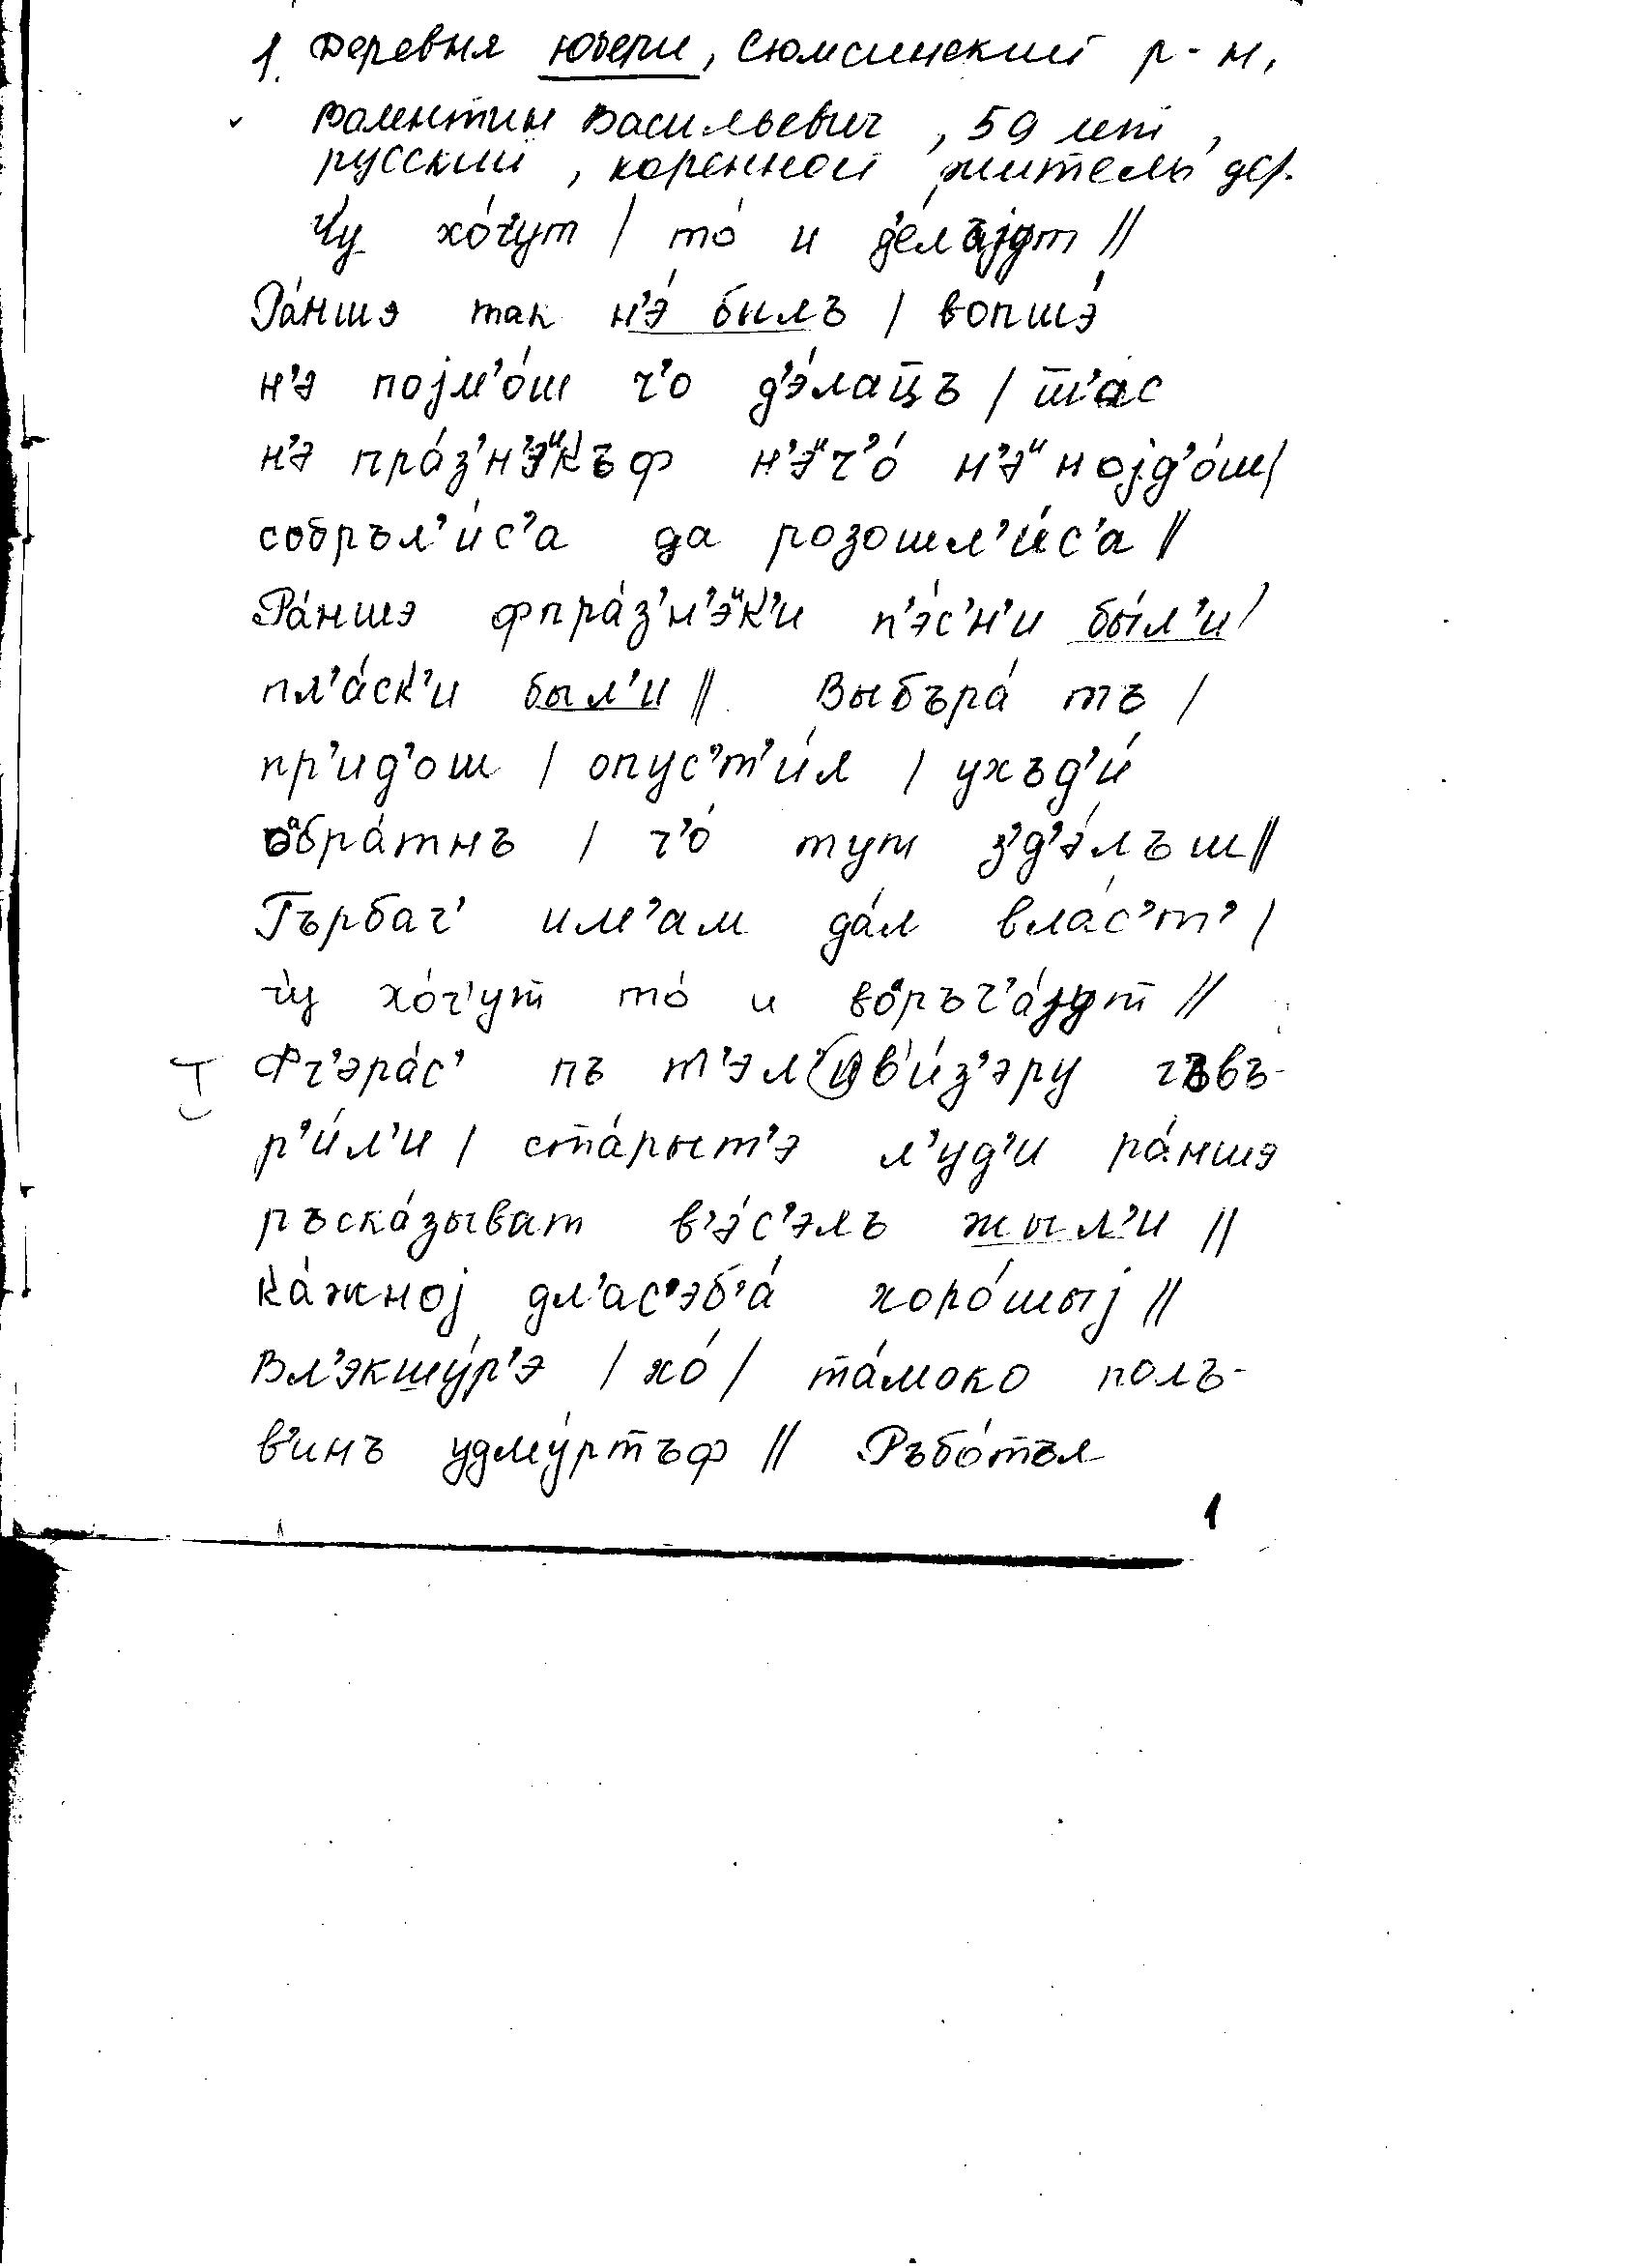 1. Деревня Юбери, Сюмсинский р-н,
Валентин Васильевич, 59 лет,
русский, коренной житель дер.
Чу хо́чут / то́ и де́лајут //
Ра́ншэ так н'э́ былъ / вопшэ́
н'э појм'о́ш ч'о д'э́лаци / т'ас
н'э пра́з'н'эᶦкъф н'эᶦч'о́ н'эᶦ нојд'о́ш/
собръл'и́с'а да розошл'и́с'а //
Ра́ншэ фпра́з'н'эᶦк'и п'э́с'н'и бы́л'и /
пл'а́ск'и был'и // Выбъра́ тъ /
пр'ид'ош / опус'т'и́л / ухъд'и́
оᵃбра́тнъ / ч'о́ тут з'д'э́лъш //
Гърбач' им'ам да́л вла́с'т' /
чу хо́ч'ут то́ и воᵃръч'а́јут //
Фч'эра́с' пъ т'эл'ив'и́з'эру гъвъ-
р'и́л'и / ста́рыт'э л'уд'и ра́ншэ
ръска́зыват в'э́с'элъ жыл'и //
Ка́жној дл'ас'эб'а́ хоро́шыј //
Вл'экшу́р'э / хо́ / та́моко полъ-
в'инъ удму́ртъф // Ръбо́тъл
1